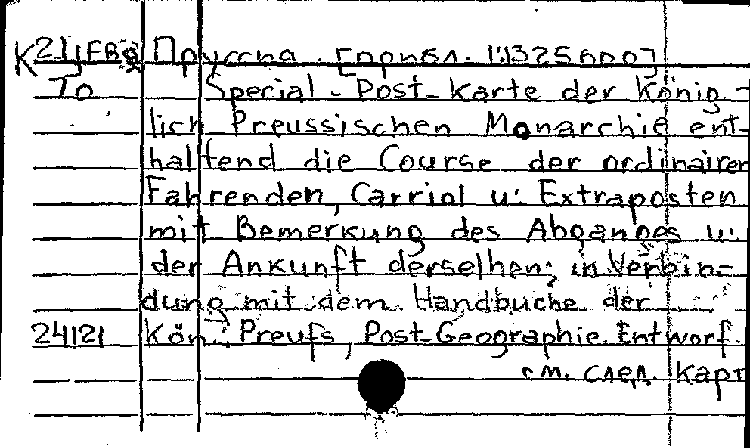 К 24/FB9 Пруссия. [прибл. 1:1325600]
To Special-Post-Karte der König-
lich Preussischen Monarchie ent-
haltend die Course der ordinairen
Fahrenden, Carriol u: Extraposten
mit Bemerkung des Abganges u.
der Ankunft derselben; in Verbin-
dung mit dem Handbuche der
24121 Kön. Preufs, Post-Geographie. Entworf.
см. след. карт